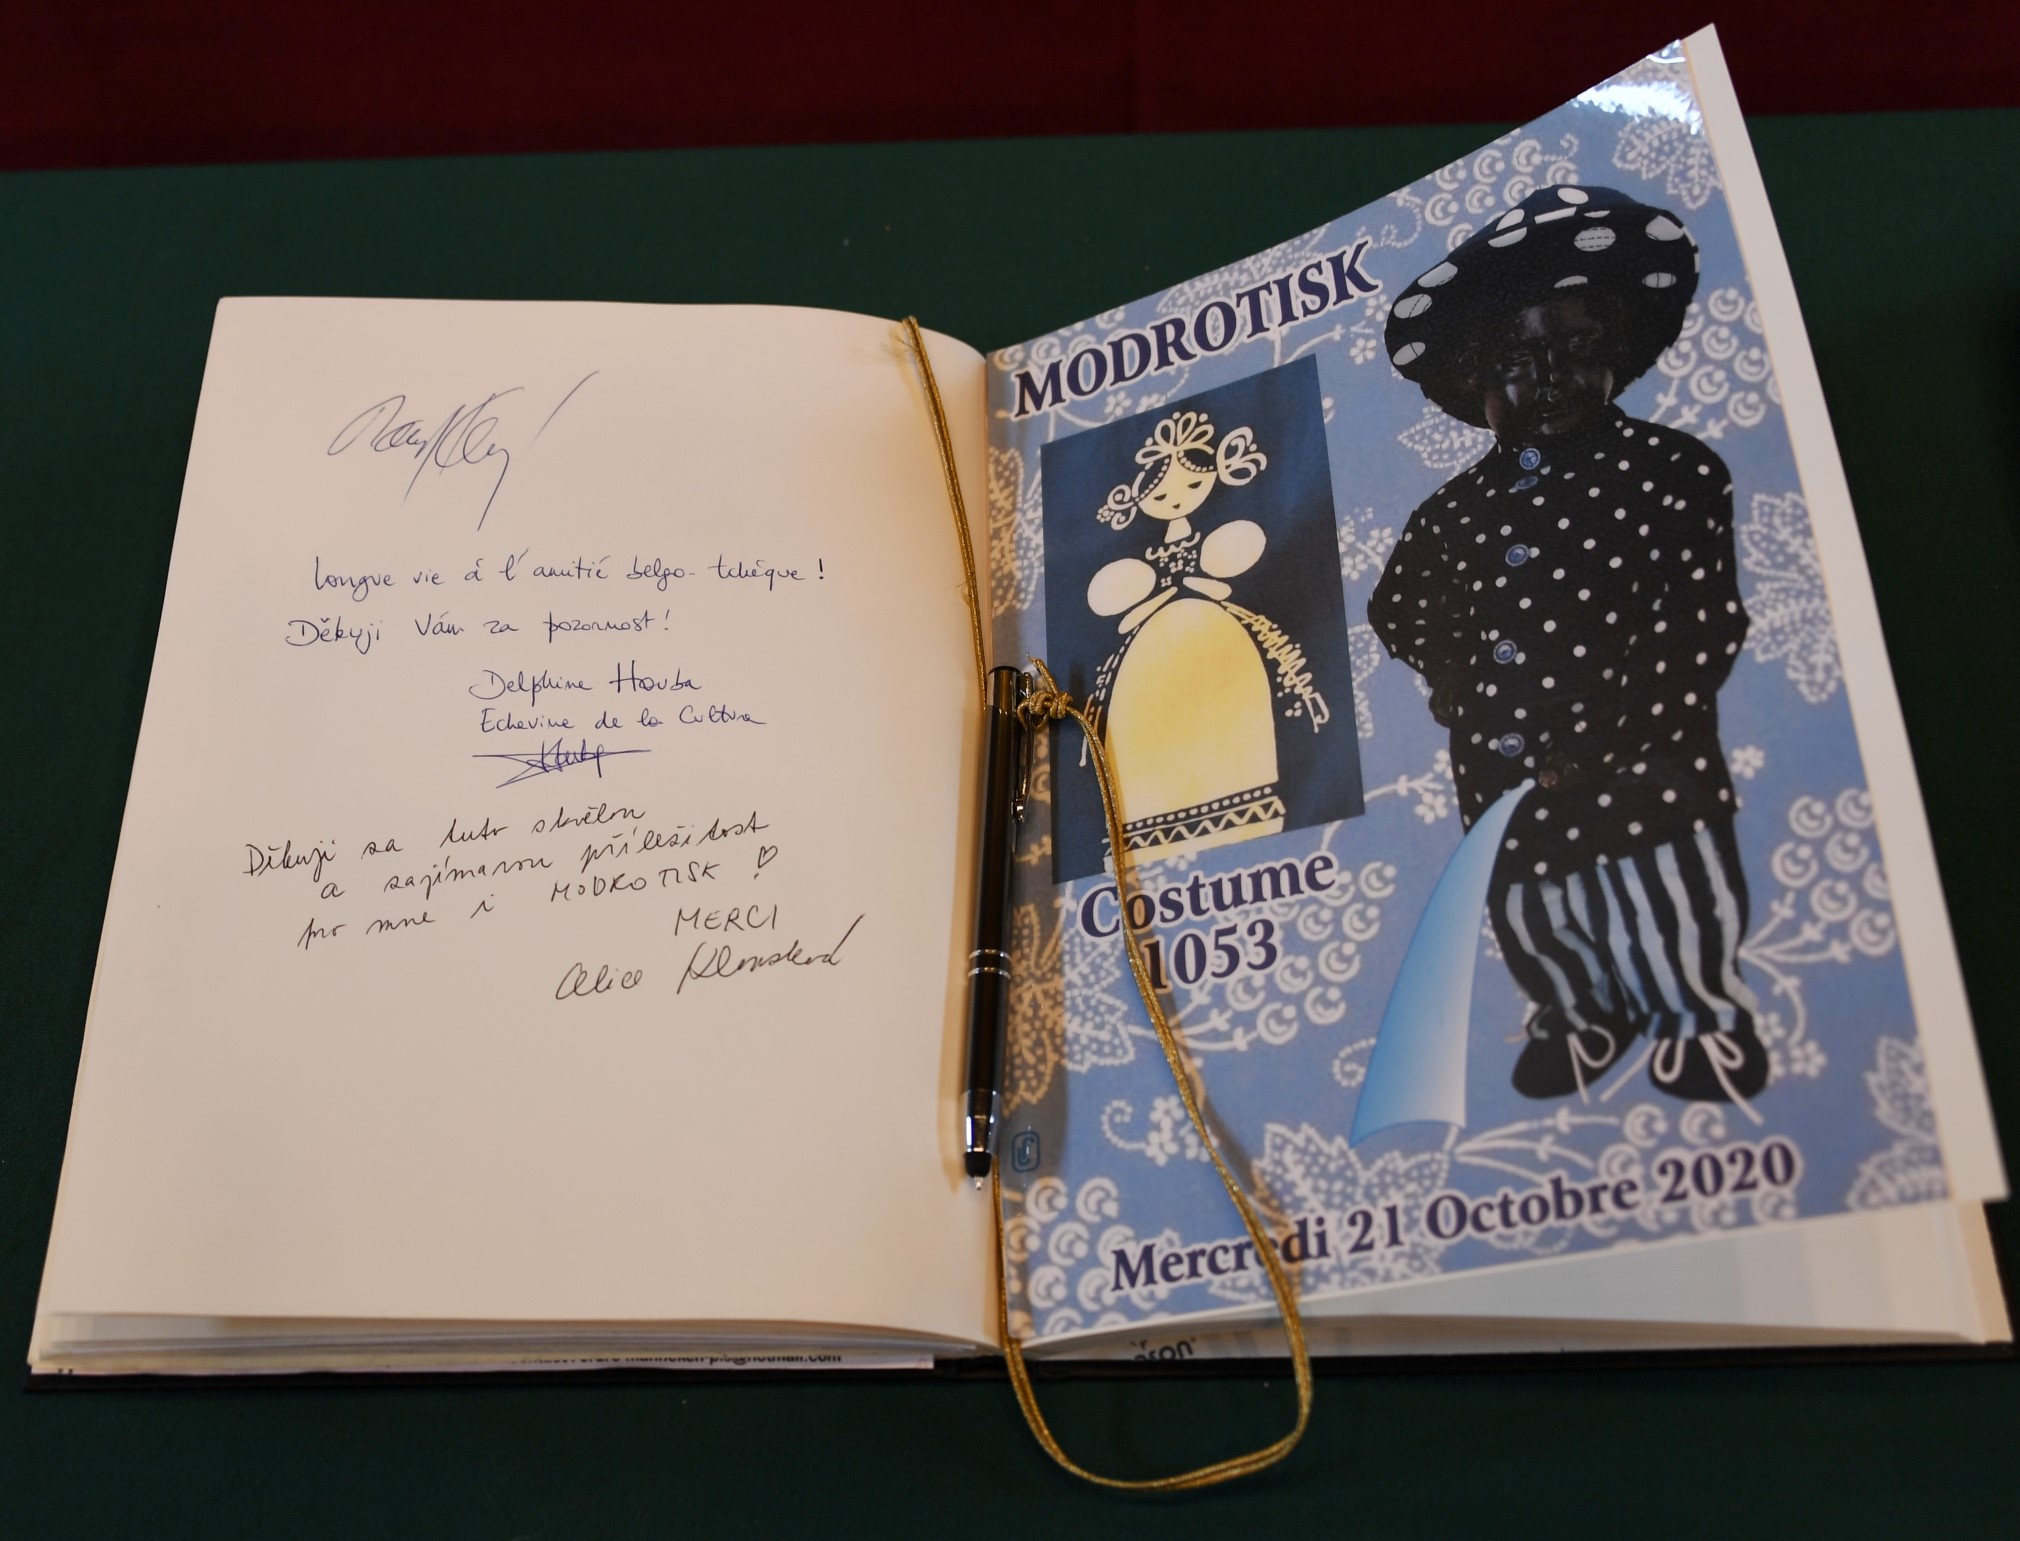 Longue vie à l'amitié belgo-tchèque !
Děkuji Vám za pozornost !
Delphine Houba
Echevine de la Culture
Děkuji za tuto skvělou
a zajímavou příležitost
pro mne i MODROTISK ! ♡
MERCI
Alice
MODROTISK
Costume
1053
Mercredi 21 Octobre 2020
manneken-pis@hotmail.com